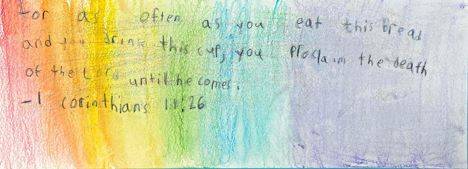 For as often as you eat this bread
and you drink this cup, you proclaim the death
of the Lord until he comes.
-1 corinthians 11:26